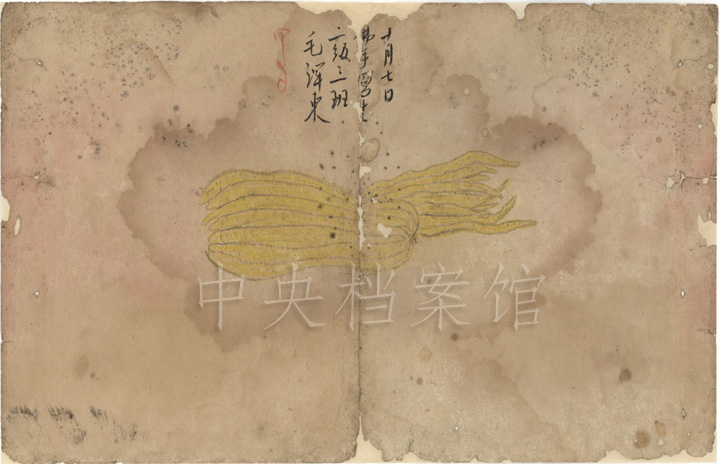 十月七日
佛手写生
二级三班
毛泽东
甲
中央档案馆